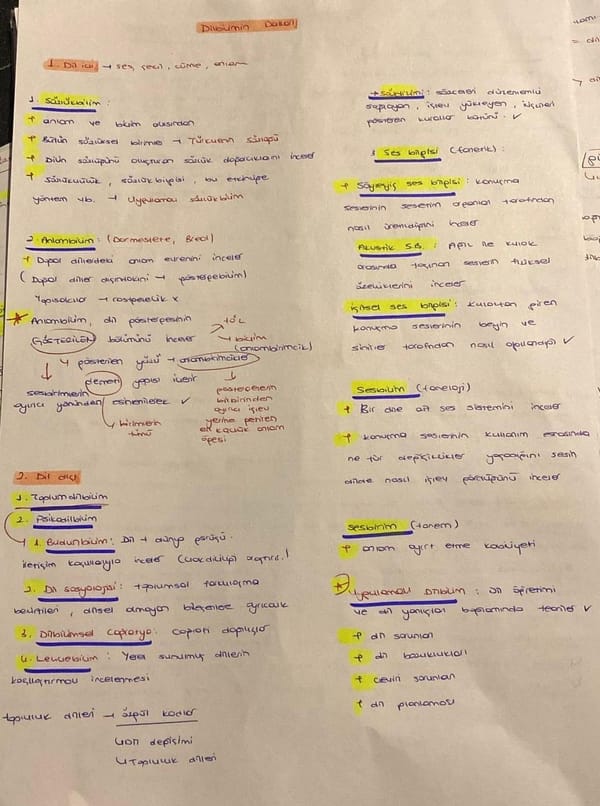 Dilbilimin Dalları
1. Dil içi → ses, şekil, cümle, anlam
1. Sözlükbilim:
+ anlam ve biçim açısından
+ Bütün sözlüksel birimler → Türkçenin sözlüğü
+ Dilin sözlüğünü oluşturan sözlük
+ Sözlükçülük, sözlük bilgisi, bu
yöntem vb. → Uygulamalı sözlükbilim
2. Anlambilim: (Darmesteter, Breal)
+ Doğal dillerdeki anlam evrenini inceler
(Doğal diller dışındakini → göstergebilim)
Yapısalcılar → rastgelelik x
* Anlambilim, dil göstergesinin
GÖSTERİLEN bölümünü inceler
→ biçim
(anlambirimcik)
↳ gösterilen yüzü → anlambirimcikler
demeti yapısı
sesbirimlerin
ayırıcı yönünden eklenilecek ✓
birimlerin
tümü
göstergelerin
birbirinden
ayırıcı işlevi
yerine getiren
en küçük anlam
öğesi
2. Dil dışı
1. Toplumdilbilim
2. Psikodilbilim
1. Budunbilim: Dil + dünya görüşü.
iletişim koşullarıyla inceler
2. Dil Sosyolojisi: toplumsal farklılaşma
belirtileri, dilsel olmayan bileşenlere ayrıcalık
3. Dilbilimsel Coğrafya: coğrafi dağılış
4. Lehçebilim: Yerel sunulmuş dillerin
karşılaştırmalı incelenmesi
topluluk dilleri → özgül kodlar
↳ alan değişimi
↳ Topluluk dilleri
→ Sözdizimi: sözceleri düzenlemli
sağlayan, işlev yükleyen, işlevleri
gösteren kurallar bütünü. ✓
3. Ses bilgisi (fonetik):
+ Söyleyiş ses bilgisi: konuşma
seslerinin seslerin organlar tarafından
nasıl üretildiğini inceler
Akustik S.B.: Ağız ile kulak
arasında taşınan seslerin fiziksel
özelliklerini inceler
İşitsel ses bilgisi: Kulaktan giren
konuşma seslerinin beyin ve
sinirler tarafından nasıl algılandığı ✓
Sesbilim (fonoloji)
+ Bir dile ait ses sistemini inceler
+ konuşma seslerinin kullanım esnasında
ne tür değişiklikler yaşadığını sesin
dilde nasıl işlev gördüğünü inceler
Sesbirim (fonem)
+ anlam ayırt etme kabiliyeti
* Uygulamalı Dilbilim: Dil öğretimi
ve dil yanlışları bağlamında teoriler ✓
+ dil sorunları
+ dil bozuklukları
+ çeviri sorunları
+ dil planlaması